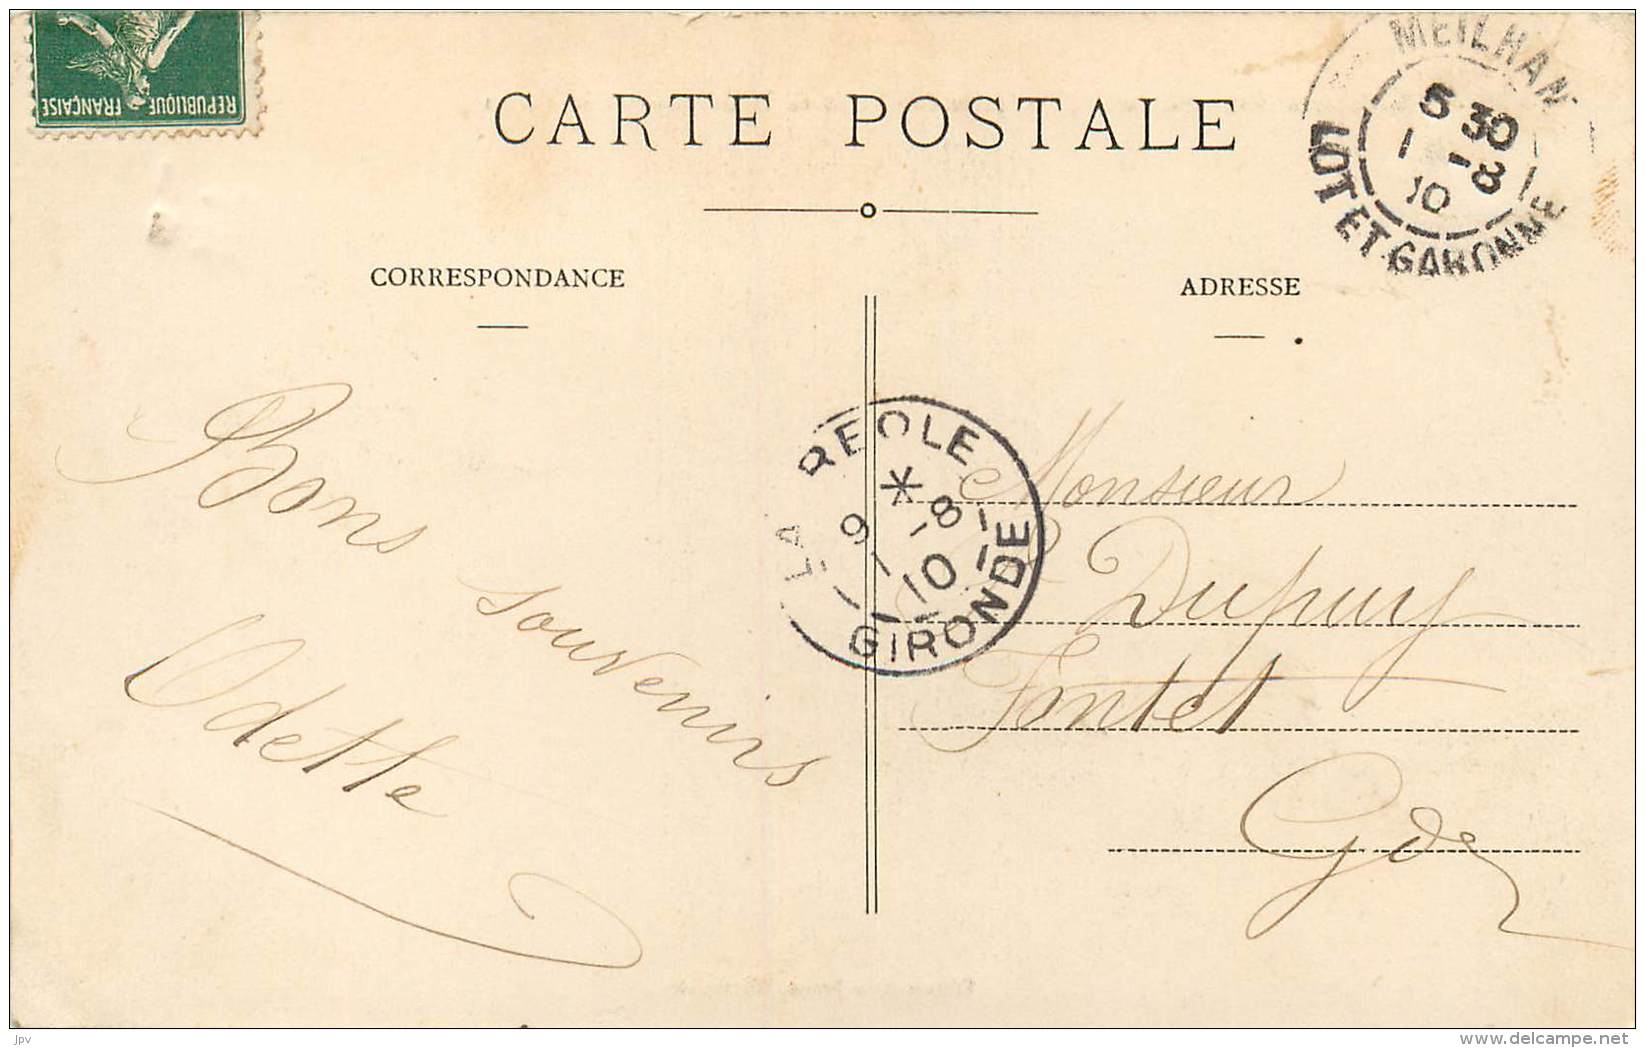 REPUBLIQUE
FRANÇAISE
CARTE POSTALE
MEILHAN
5 30
1 -8
10
LOT ET GARONNE
CORRESPONDANCE
ADRESSE
LA REOLE
9 * 
1 -8
10
GIRONDE
Bons souvenirs
Odette
Monsieur
Dupuy
Fontet
Gde
jpv
www.delcampe.net